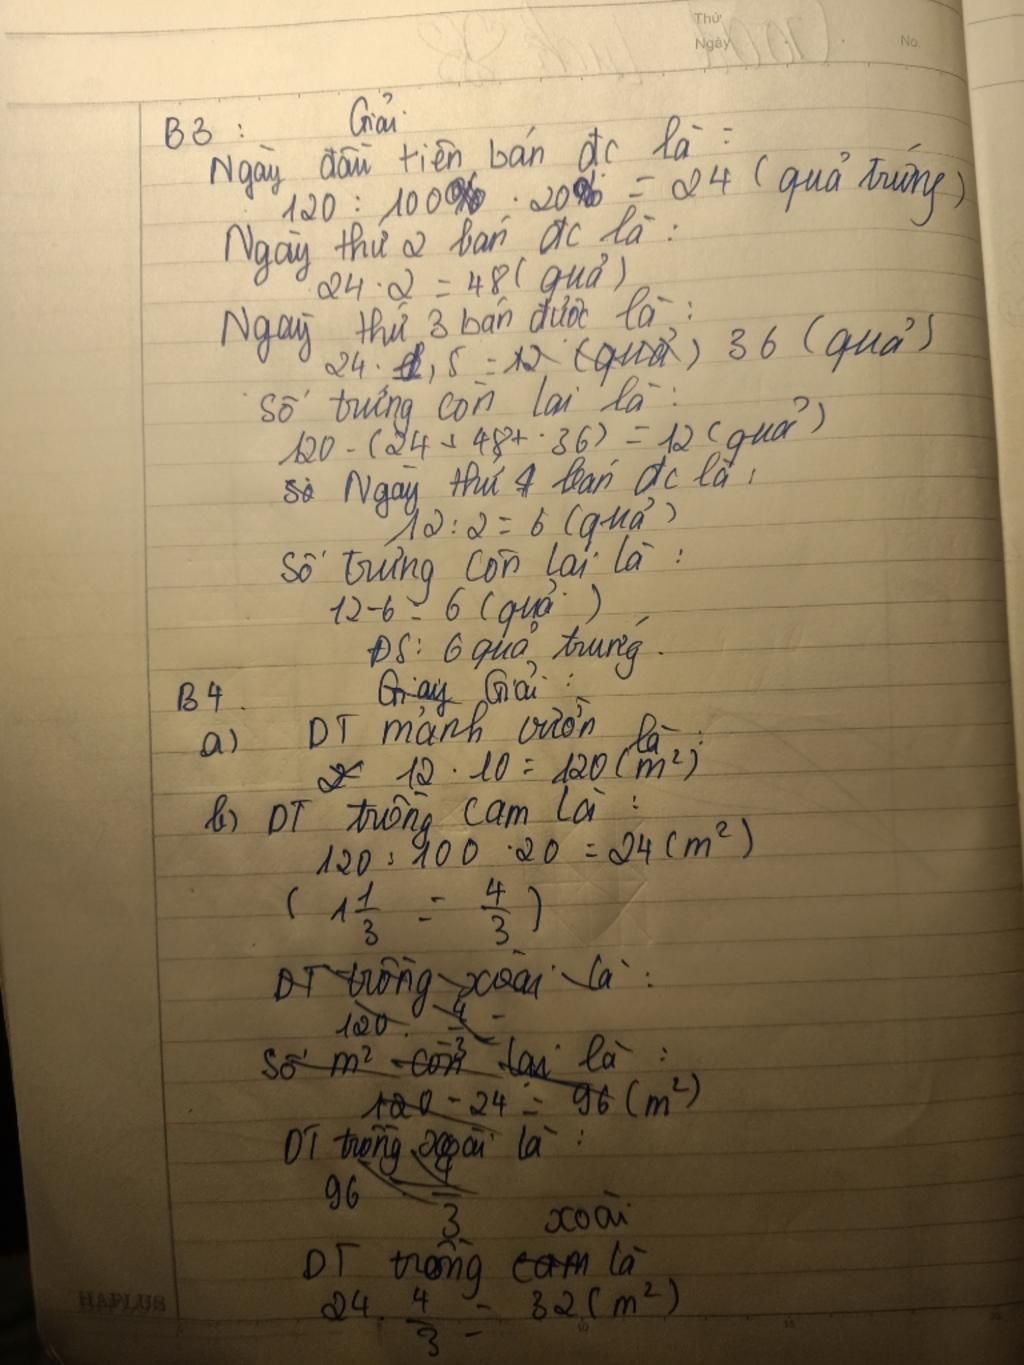 Thứ
Ngày
No.
B3 : Giải
Ngày đầu tiên bán đc là :
120 : 100% . 20% = 24 ( quả trứng)
Ngày thứ 2 bán đc là :
24 . 2 = 48 ( quả)
Ngày thứ 3 bán được là :
24 . 1,5 = 12 (quả) 36 (quả)
Số trứng còn lại là :
120 - (24 + 48 + . 36) = 12 (quả)
Số Ngày thứ 4 bán đc là :
12 : 2 = 6 (quả)
Số trứng còn lại là :
12-6 = 6 (quả )
ĐS: 6 quả trứng.
B4. Giay Giải :
a) DT mảnh vườn là :
2 12 . 10 = 120 (m²)
b) DT trồng cam là :
120 : 100 . 20 = 24 (m²)
( 1 1/3 = 4/3 )
DT trồng xoài là :
120 . 4/3 =
Số m² còn lại là :
120 - 24 = 96 (m²)
DT trồng xoài là :
96 4/3
xoài
DT trồng cam là
24 . 4/3 = 32 (m²)
HAPLUS